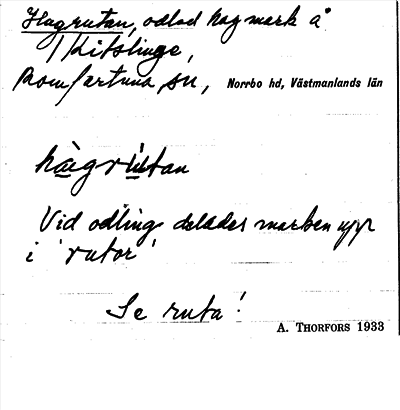 Hagrutan, odlad hagmark å
Kitslinge,
Romfartuna sn, Norrbo hd, Västmanlands län
hàgrùtan
Vid odling delades marken upp
i 'rutor'
Se ruta!
A. THORFORS 1933